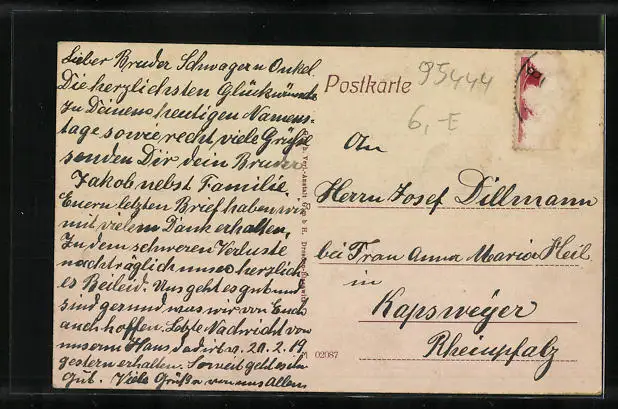 Lieber Bruder Schwager u Onkel.
Die herzlichsten Glückwünsche
zu Deinem heutigen Namens-
tage sowie recht viele Grüße
senden Dir dein Bruder
Jakob nebst Familie.
Euern letzten Brief haben wir
mit vielem Dank erhalten,
Zu dem schweren Verluste
nachträglich unser herzlich
es Beileid. Uns geht es gut und
sind gesund was wir von Euch
auch hoffen. Letzte Nachricht von
unserm Hans
gestern erhalten. Soweit geht es ihm
gut. Viele Grüße von uns Allen
Postkarte
95444
6,-E
An
Herrn Josef Dillmann
bei Frau Anna Maria Heil
in
Kapsweyer
Rheinpfalz
M 02087